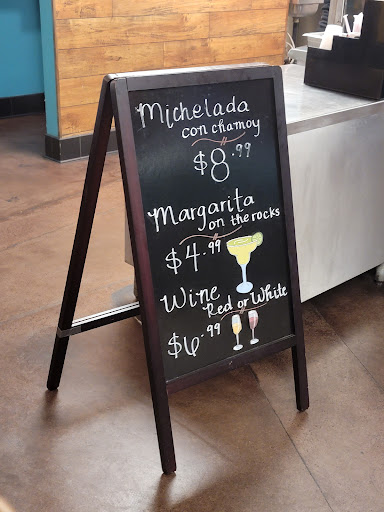 Michelada
con chamoy
$8.99
Margarita
on the rocks
$4.99
Wine
Red or White
$6.99